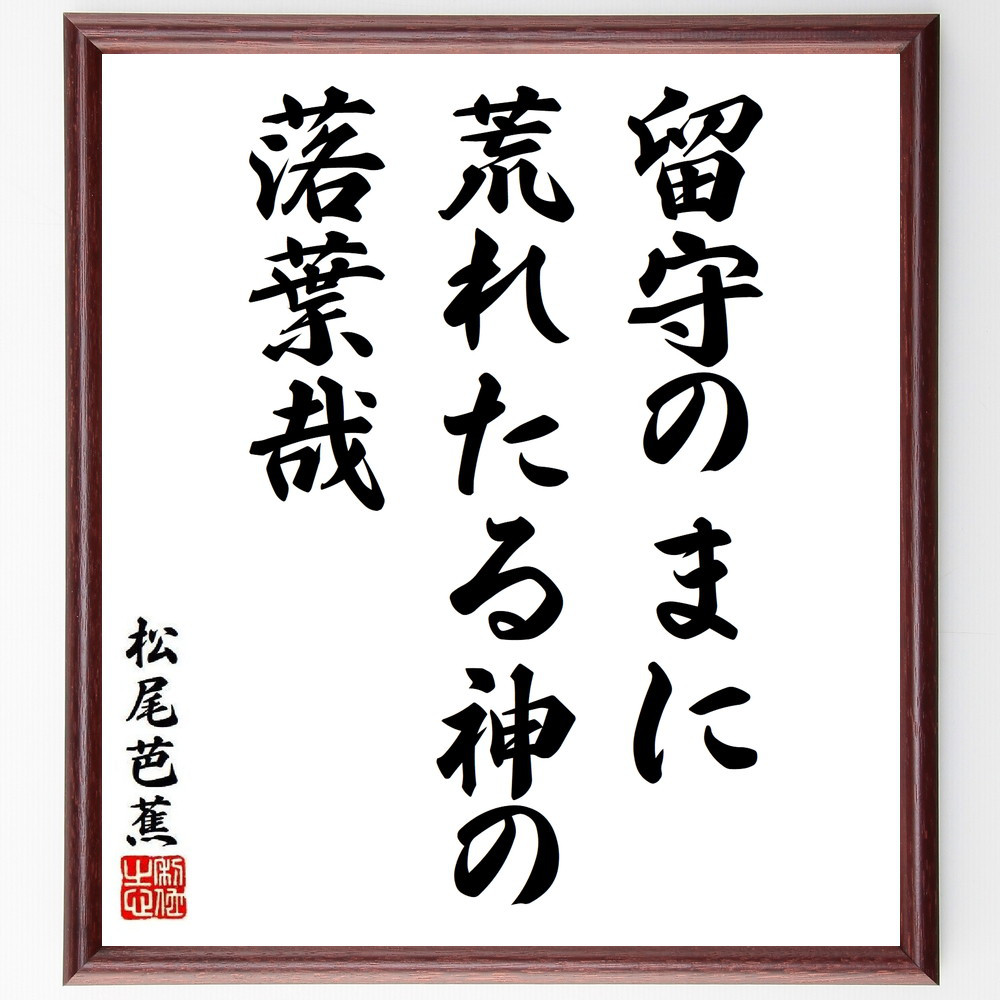 留守のまに
荒れたる神の
落葉哉
松尾芭蕉